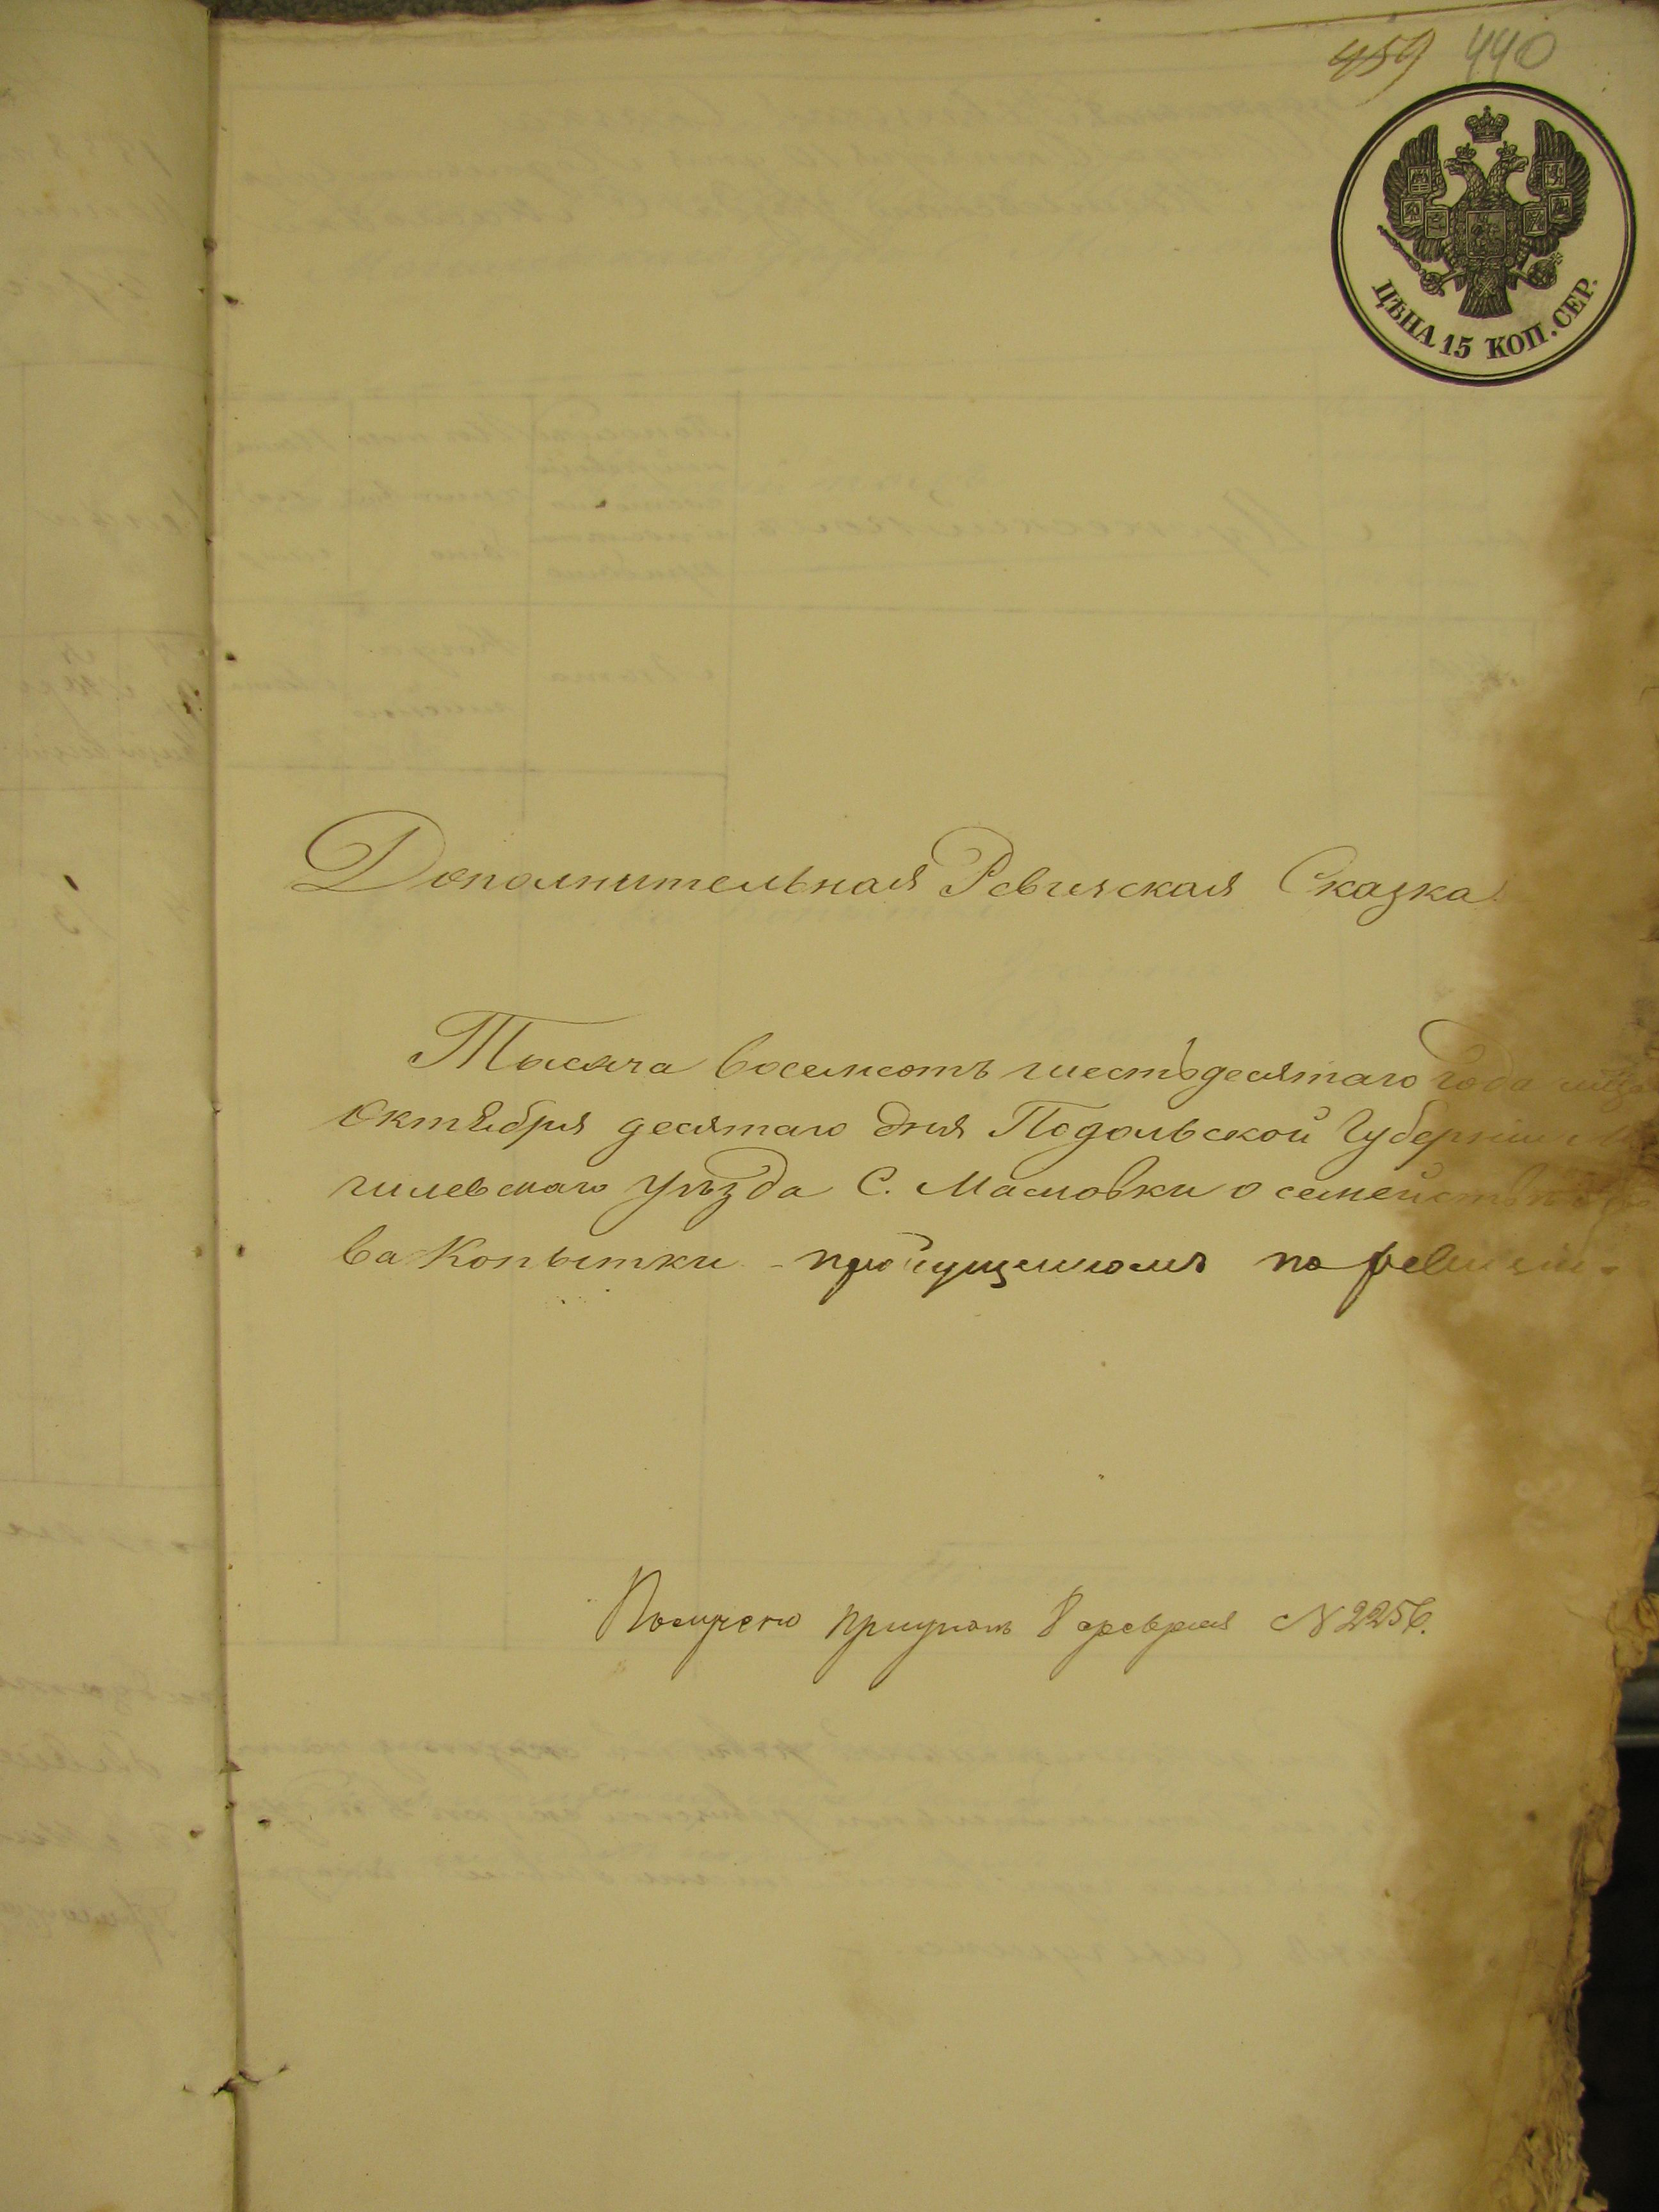 459 440
ЦѢНА 15 КОП. СЕР.
Дополнительная Ревизская Сказка
Тысяча восемсотъ шестьдесятаго года
Октября десятаго дня Подольской Губерніи Мо
гилевскаго уѣзда С. Масловки о семействѣ
ва Копытки - пропущенномъ по ревизіи.
8 февраля N 2256.